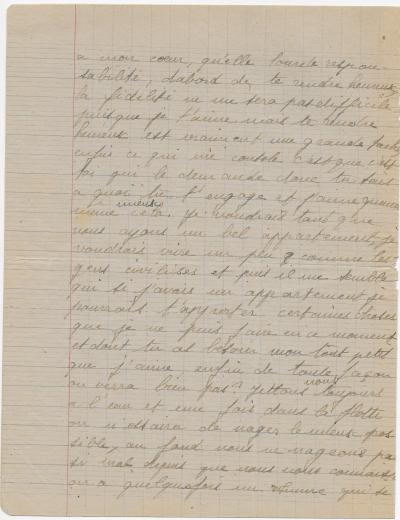 a mon cœur, qu'elle lourde respon-
sabilité, d'abord de te rendre heureux
la fidélité ne me sera pas difficile
puisque je t'aime mais te rendre
heureux est vraiment une grande tache
enfin ce qui me console c'est que c'est
toi qui le demande donc tu sais
a quoi tu t'engage et j'aime
mieux
même cela. Je voudrais tant que
nous ayons un bel appartement, je
voudrais vivre un peu comme les
gens civilisés et puis il me semble
que si j'avais un appartement je
pourrais t'apporter certaines choses
que je ne puis faire en ce moment
et dont tu as besoin mon tout petit
que j'aime, enfin de toute façon
on verra bien pas? jettons nous toujours
a l'eau et une fois dans la flotte
on essaira de nager le mieux pos-
sible, au fond nous ne nageons pas
si mal depuis que nous nous connaiss
on a quelquefois un qui se